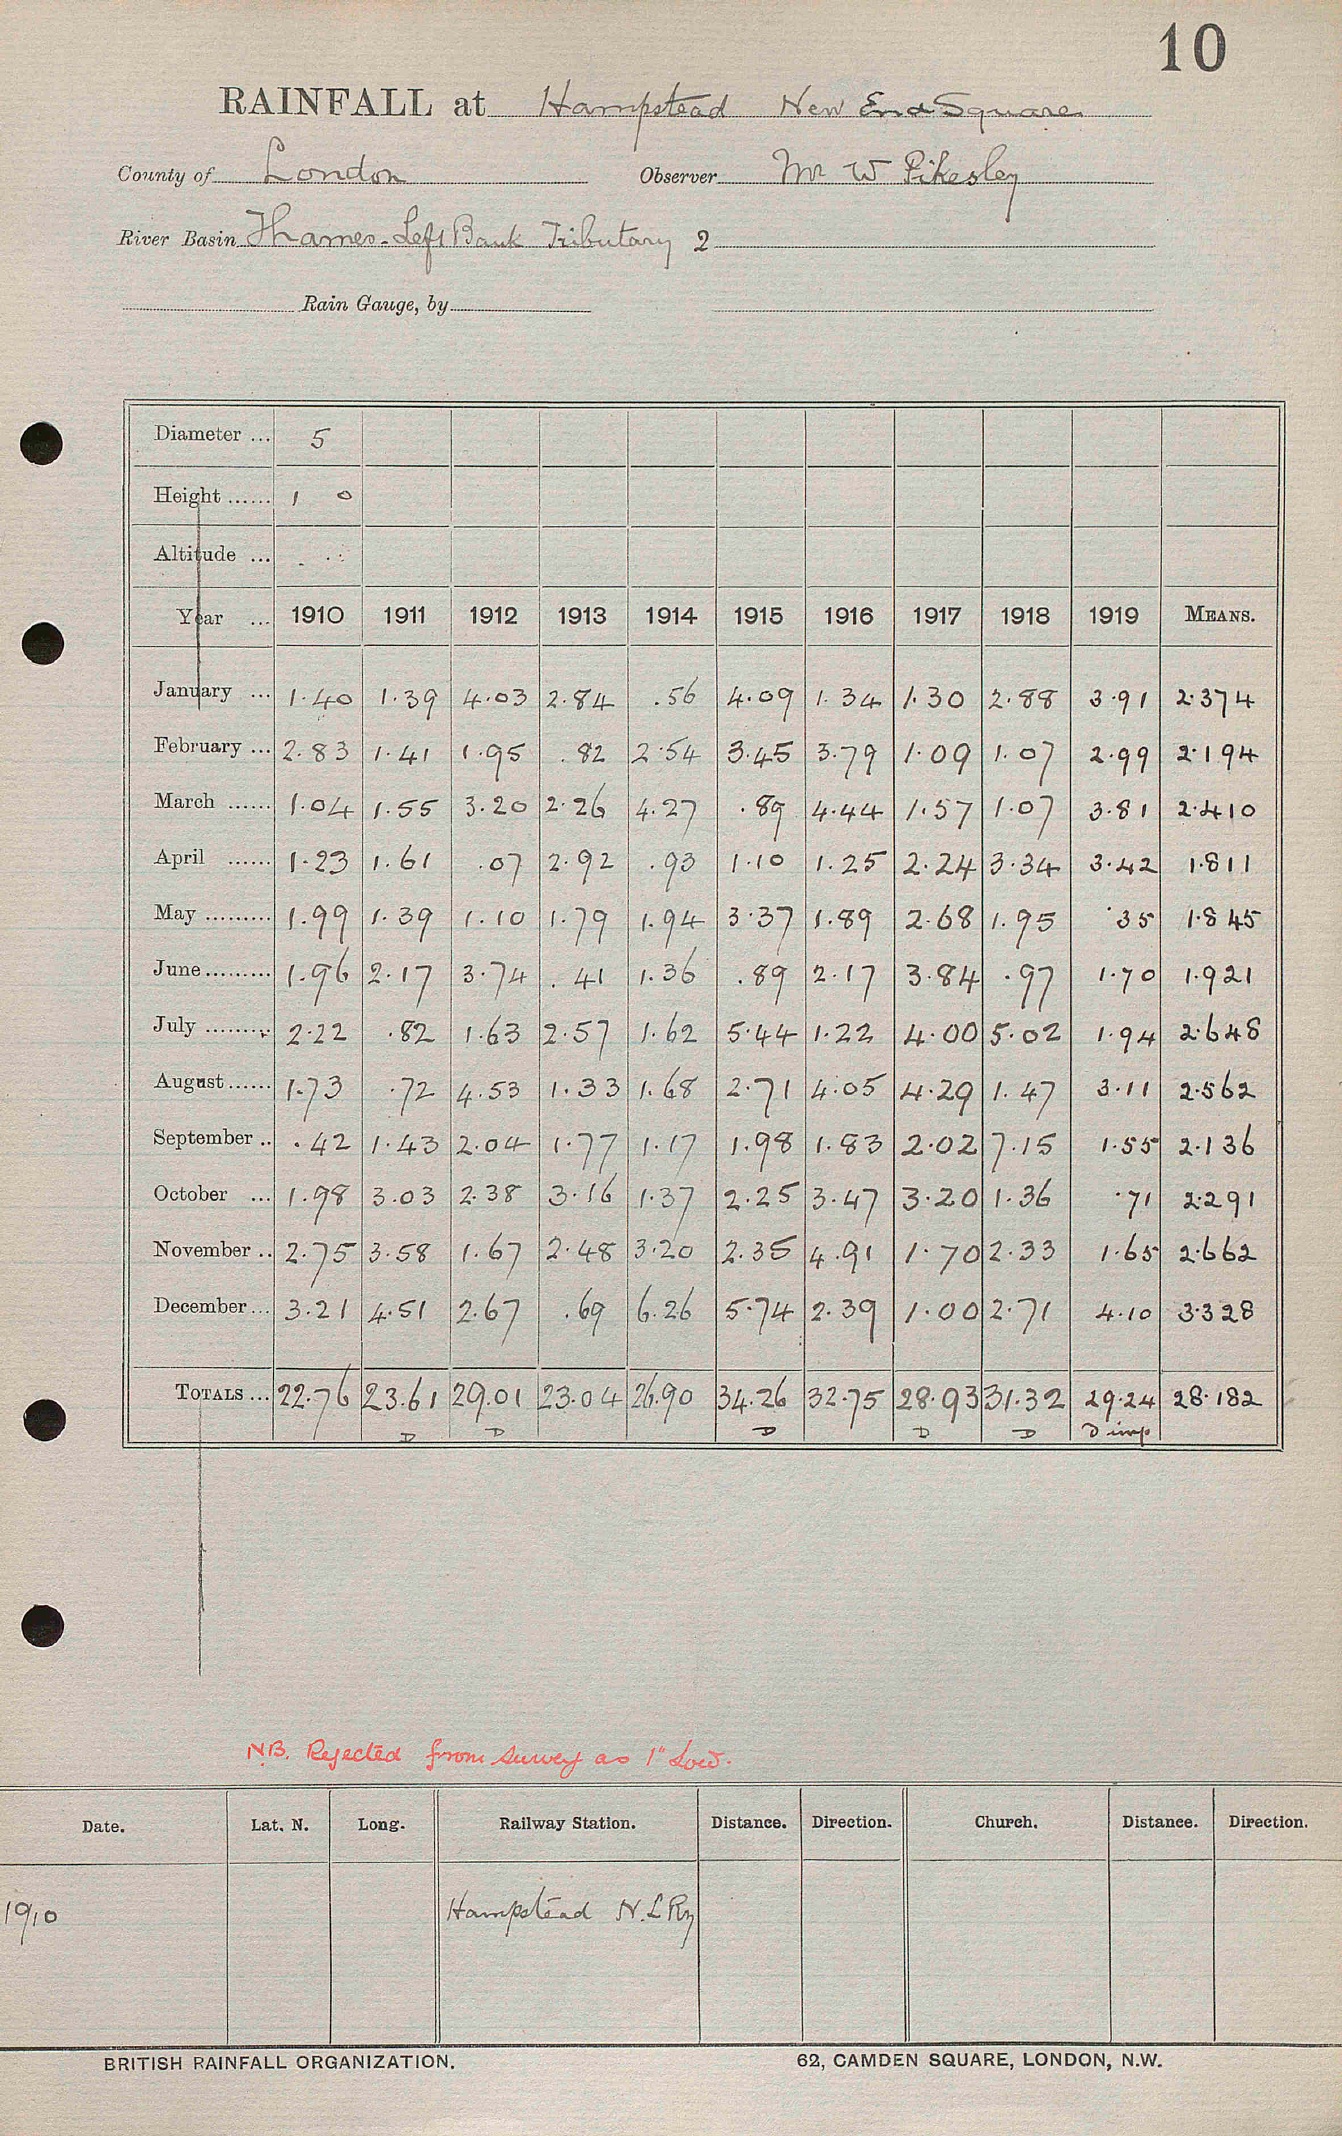 10
RAINFALL at Hampstead New End Square
County of London Observer Mr W Pikesley
River Basin Thames-Left Bank Tributary 2
Rain Gauge, by
Diameter ... 5
Height ...... 1 0
Altitude ...
Year ... 1910 1911 1912 1913 1914 1915 1916 1917 1918 1919 MEANS.
January ... 1.40 1.39 4.03 2.84 .56 4.09 1.34 1.30 2.88 3.91 2.374
February ... 2.83 1.41 1.95 .82 2.54 3.45 3.79 1.09 1.07 2.99 2.194
March ...... 1.04 1.55 3.20 2.26 4.27 .89 4.44 1.57 1.07 3.81 2.410
April ...... 1.23 1.61 .07 2.92 .93 1.10 1.25 2.24 3.34 3.42 1.811
May ......... 1.99 1.39 1.10 1.79 1.94 3.37 1.89 2.68 1.95 .35 1.845
June ......... 1.96 2.17 3.74 .41 1.36 .89 2.17 3.84 .97 1.70 1.921
July ......... 2.22 .82 1.63 2.57 1.62 5.44 1.22 4.00 5.02 1.94 2.648
August ...... 1.73 .72 4.53 1.33 1.68 2.71 4.05 4.29 1.47 3.11 2.562
September .. .42 1.43 2.04 1.77 1.17 1.98 1.83 2.02 7.15 1.55 2.136
October ... 1.98 3.03 2.38 3.16 1.37 2.25 3.47 3.20 1.36 .71 2.291
November .. 2.75 3.58 1.67 2.48 3.20 2.35 4.91 1.70 2.33 1.65 2.662
December ... 3.21 4.51 2.67 .69 6.26 5.74 2.39 1.00 2.71 4.10 3.328
TOTALS ... 22.76 23.61 29.01 23.04 26.90 34.26 32.75 28.93 31.32 29.24 28.182
D D D D D D imp
NB. Rejected from survey as 1" Low.
Date. Lat. N. Long. Railway Station. Distance. Direction. Church. Distance. Direction.
1910 Hampstead N. L Ry
BRITISH RAINFALL ORGANIZATION. 62, CAMDEN SQUARE, LONDON, N.W.